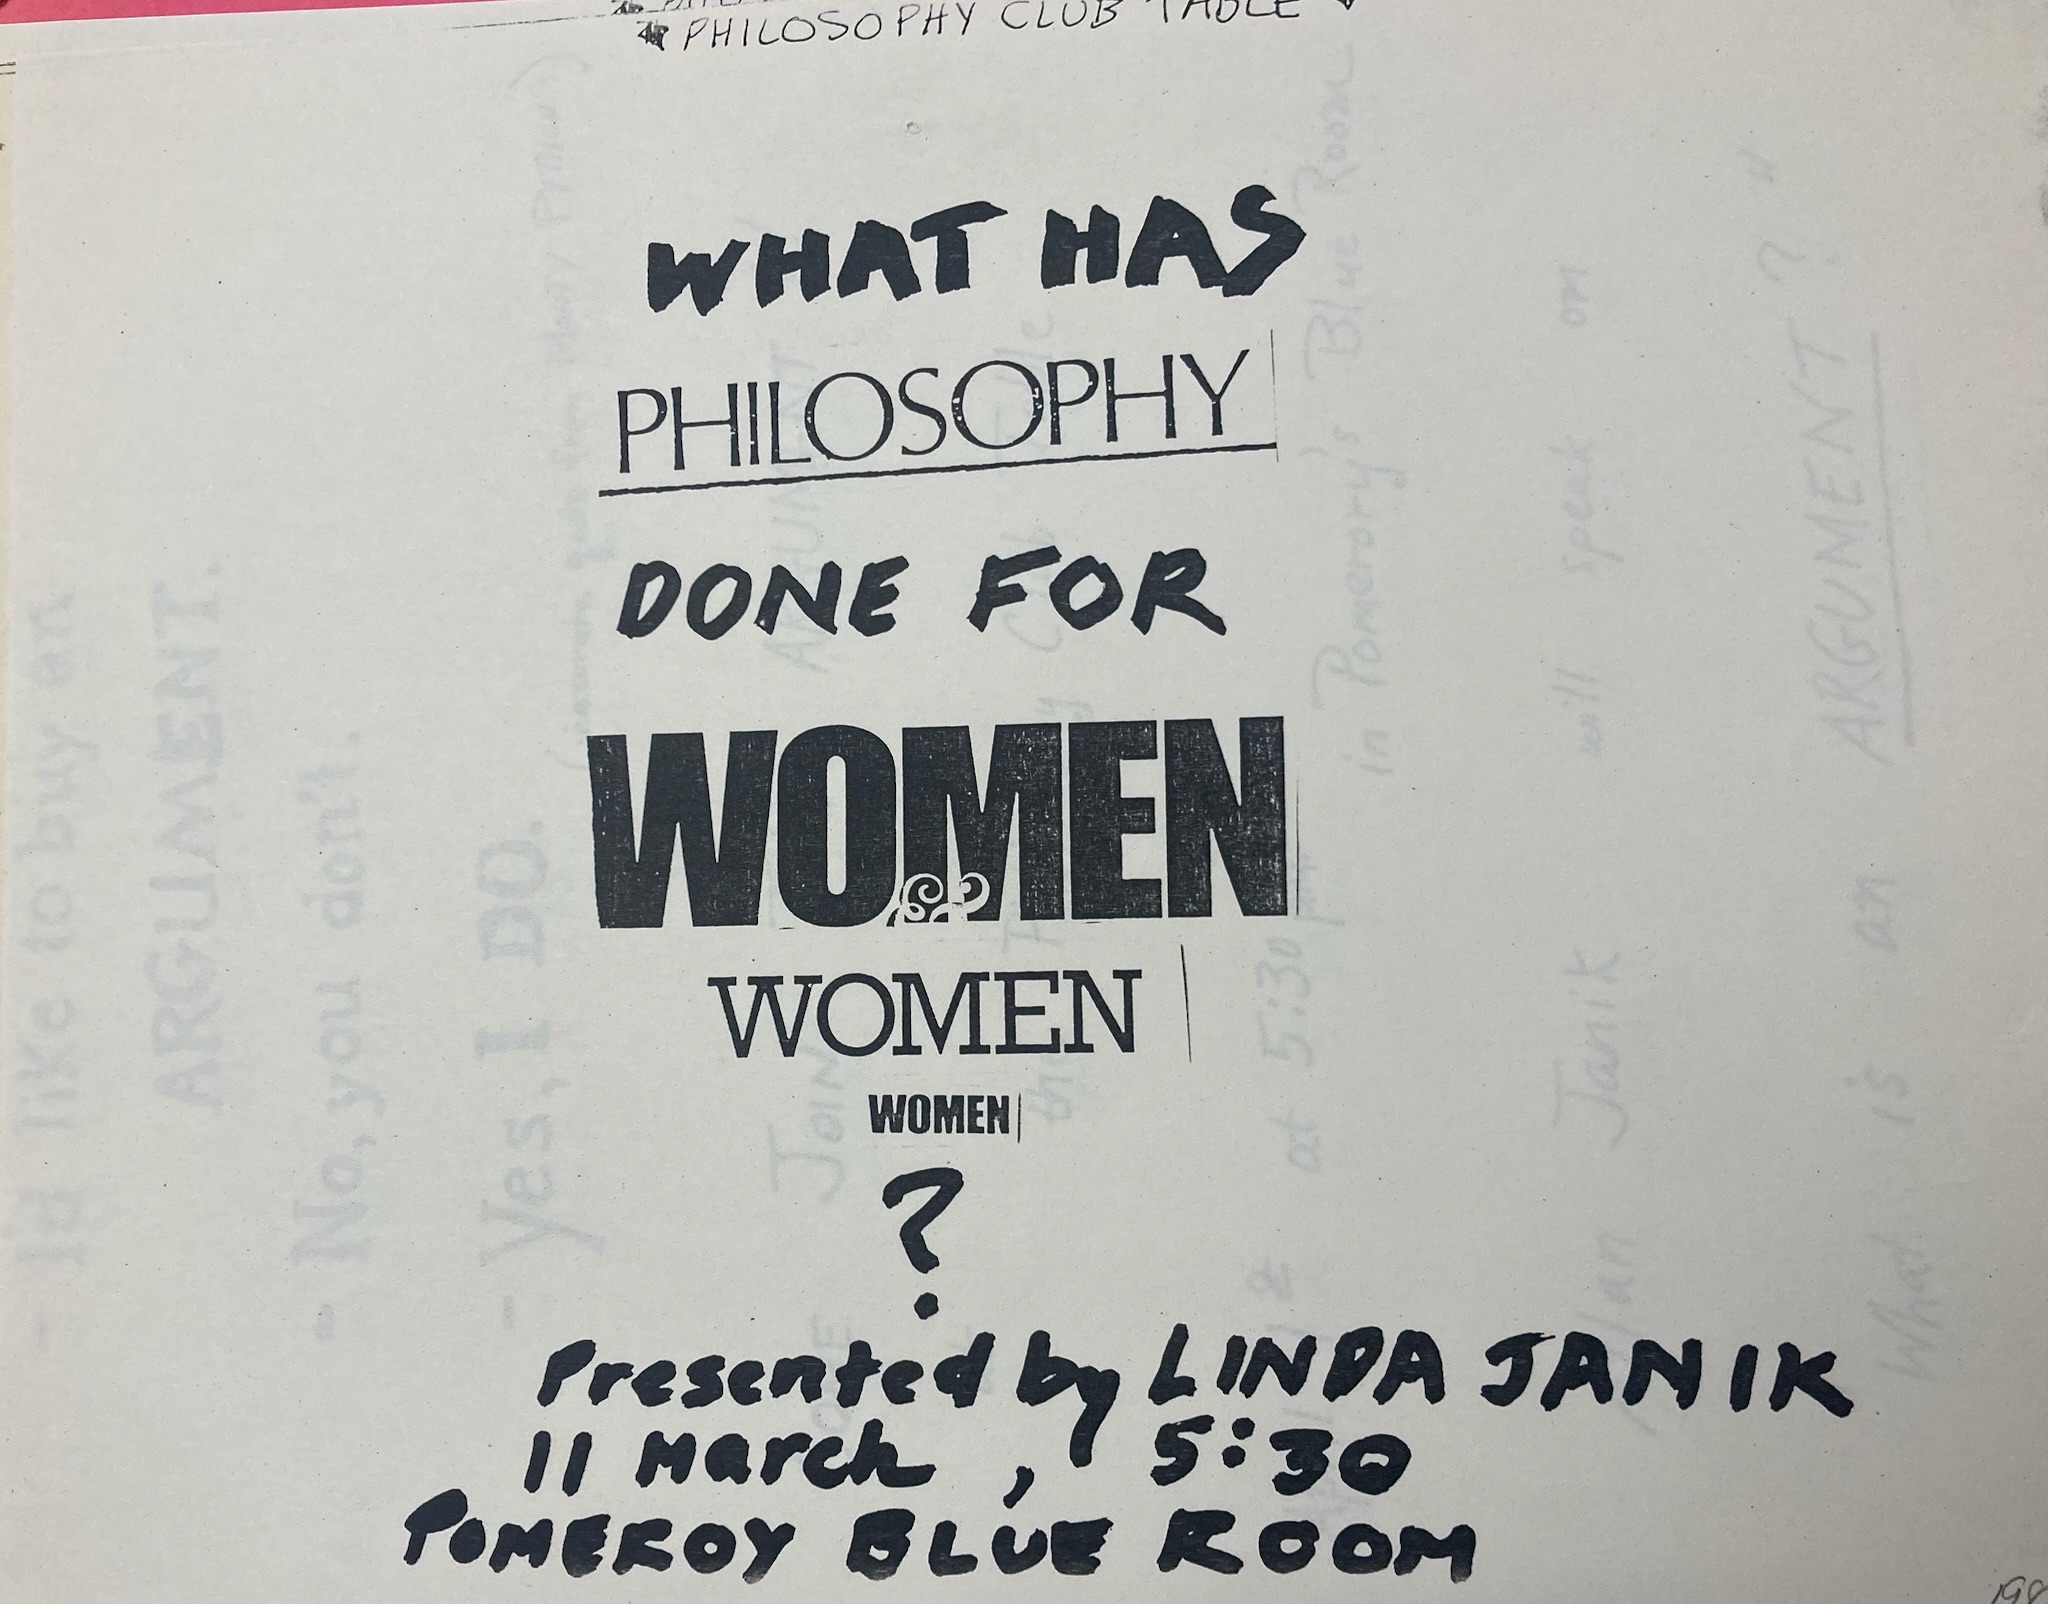 PHILOSOPHY CLUB TABLE
WHAT HAS
PHILOSOPHY
DONE FOR
WOMEN
WOMEN
WOMEN
?
Presented by LINDA JANIK
11 March, 5:30
POMEROY BLUE ROOM
- I'd like to buy an
ARGUMENT.
- No, you don't.
- Yes, I DO.
JOIN
at 5:30 pm in Pomerory's Blue Room
Allan Janik will speak on
What is an ARGUMENT?"